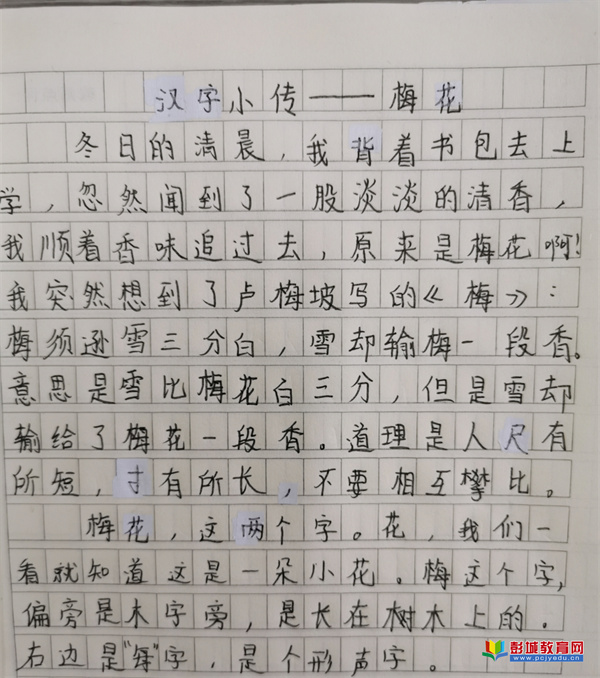 汉字小传——梅花
冬日的清晨，我背着书包去上
学，忽然闻到了一股淡淡的清香，
我顺着香味追过去，原来是梅花啊！
我突然想到了卢梅坡写的《梅》：
梅须逊雪三分白，雪却输梅一段香。
意思是雪比梅花白三分，但是雪却
输给了梅花一段香。道理是人尺有
所短，寸有所长，不要相互攀比。
梅花，这两个字。花，我们一
看就知道这是一朵小花。梅这个字，
偏旁是木字旁，是长在树木上的．
右边是"每"字，是个形声字。
彭城教育网
www.pcjyedu.cn